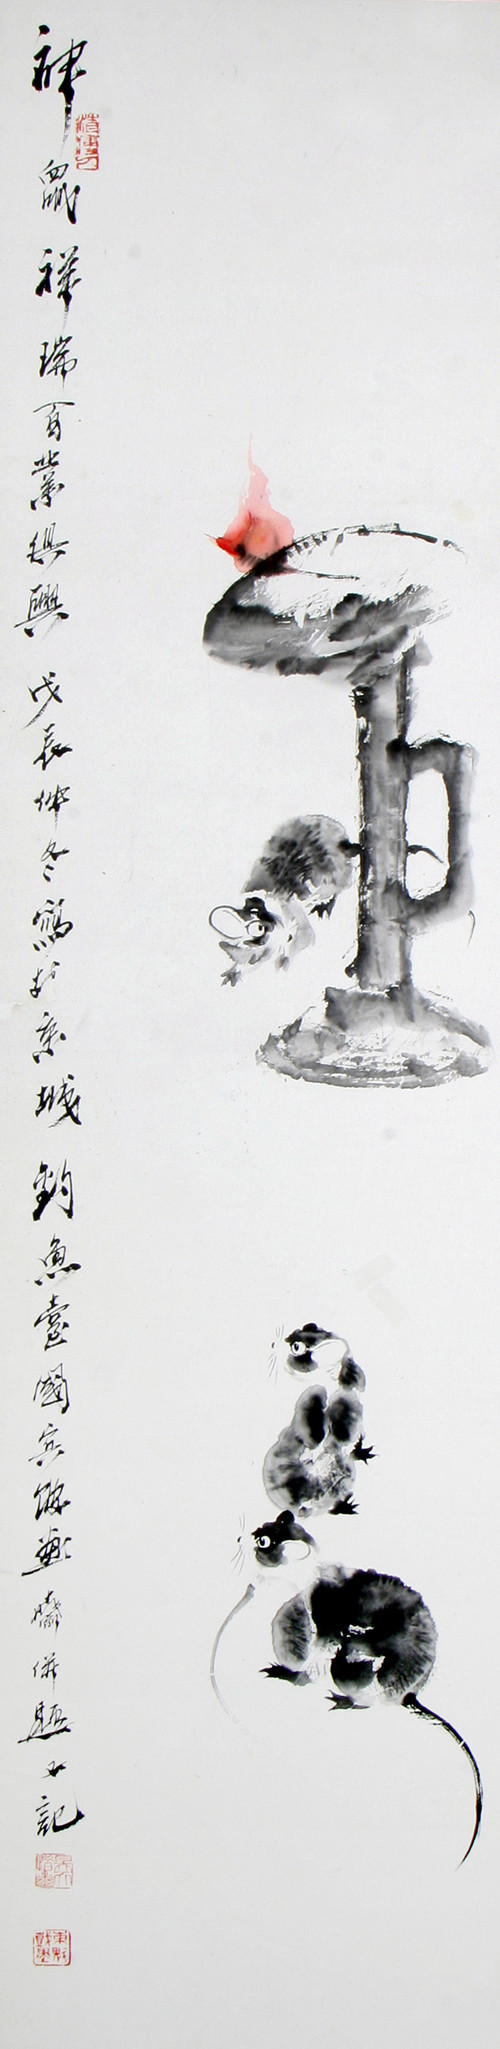 神鼠祥瑞百業俱興 戊辰仲冬寫於京城 釣魚臺國賓館 併題又記